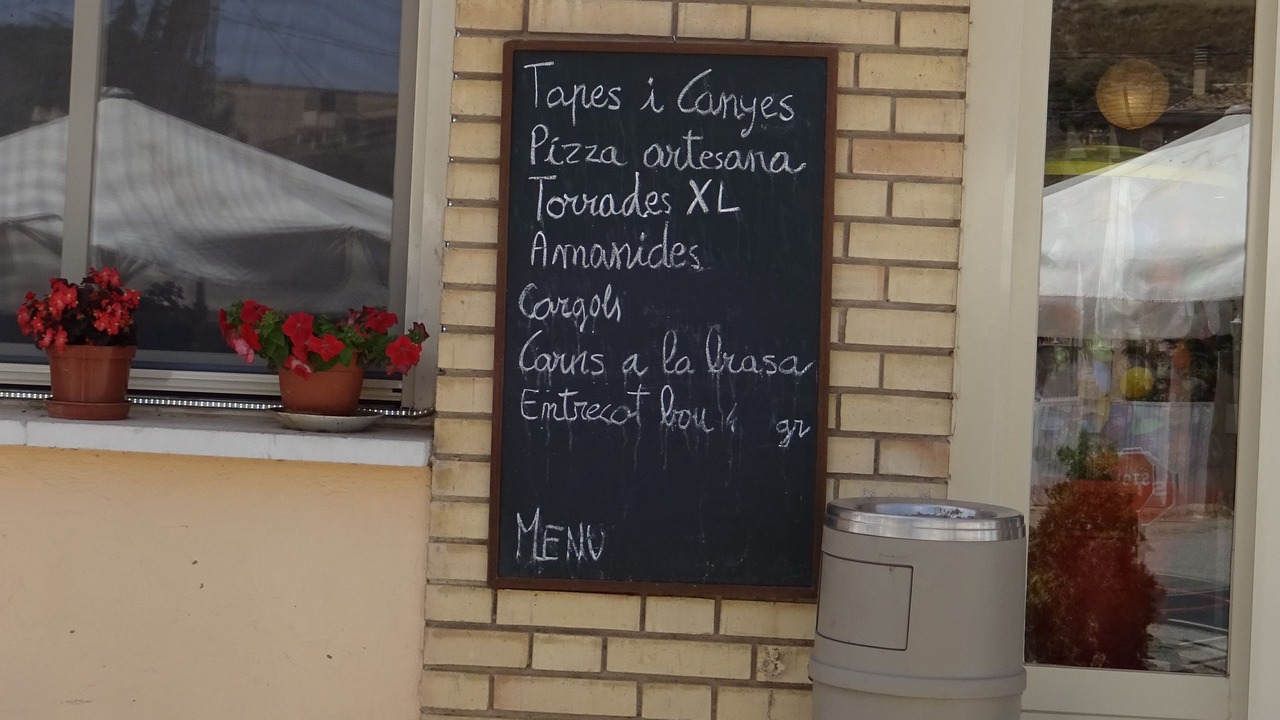 Tapes i Canyes
Pizza artesana
Torrades XL
Amanides
Cargols
Carns a la brasa
Entrecot bou gr
MENU
STOP